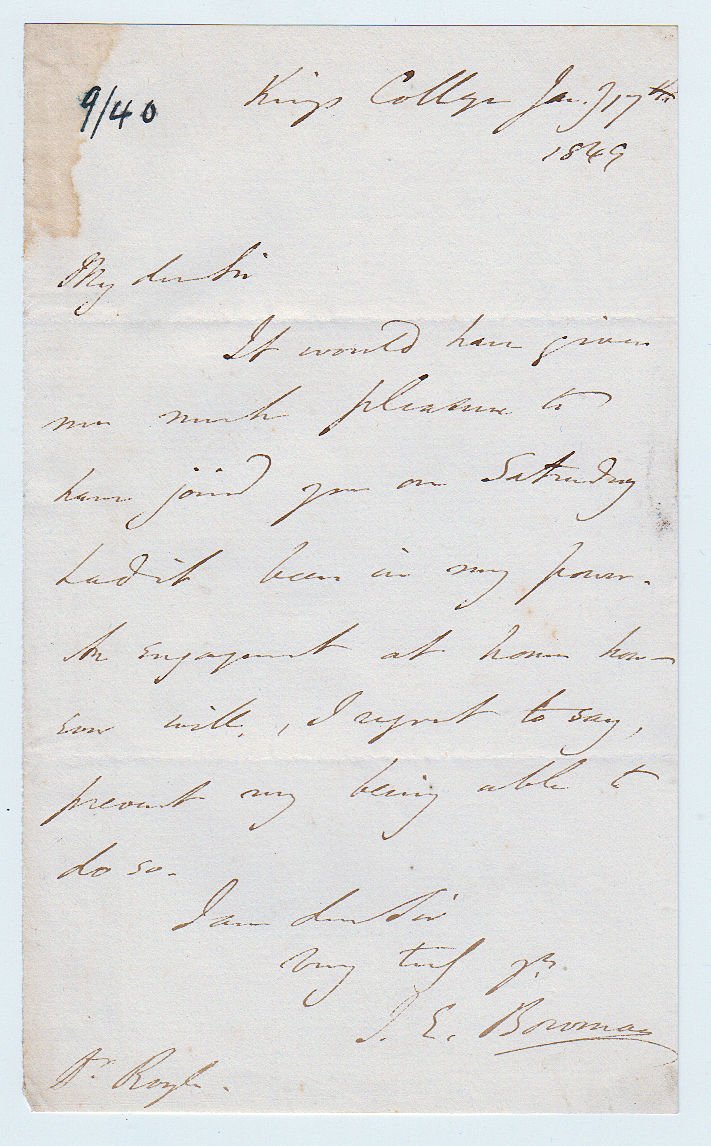 9/40
Kings College Jany 17th
1849
My dear Sir
It would have given
me much pleasure to
have joined you on Saturday
had it been in my power.
An engagement at home how-
ever will, I regret to say,
prevent my being able to
do so.
I am dear Sir
Very truly yrs.
J. E. Bowman
Dr. Royle.